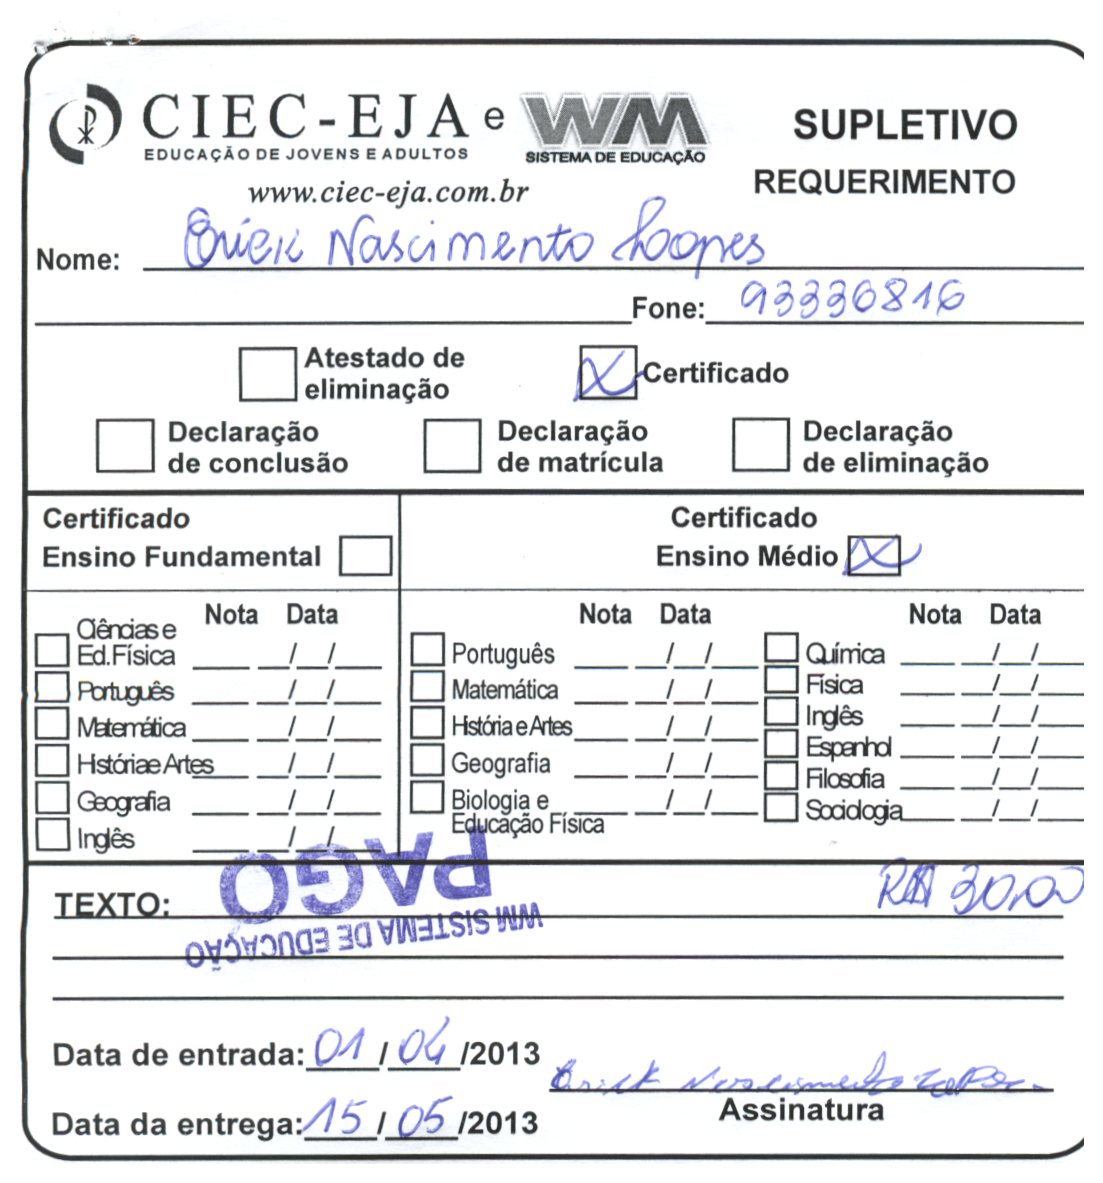 CIEC-EJA e WM SUPLETIVO
EDUCAÇÃO DE JOVENS E ADULTOS SISTEMA DE EDUCAÇÃO
www.ciec-eja.com.br REQUERIMENTO
Nome: Erick Nascimento Loopes
Fone: 93336816
Atestado de eliminação X Certificado
Declaração de conclusão Declaração de matrícula Declaração de eliminação
Certificado Ensino Fundamental
Certificado Ensino Médio X
Nota Data
Ciências e Ed.Física ____ __/__/____
Português ____ __/__/____
Matemática ____ __/__/____
História e Artes ____ __/__/____
Geografia ____ __/__/____
Inglês ____ __/__/____
Nota Data
Português ____ __/__/____
Matemática ____ __/__/____
História e Artes ____ __/__/____
Geografia ____ __/__/____
Biologia e Educação Física ____ __/__/____
Nota Data
Química ____ __/__/____
Física ____ __/__/____
Inglês ____ __/__/____
Espanhol ____ __/__/____
Filosofia ____ __/__/____
Sociologia ____ __/__/____
PAGO
WM SISTEMA DE EDUCAÇÃO
TEXTO: R$ 30,00
Data de entrada: 01/04/2013
Erick Nascimento
Assinatura
Data da entrega: 15/05/2013